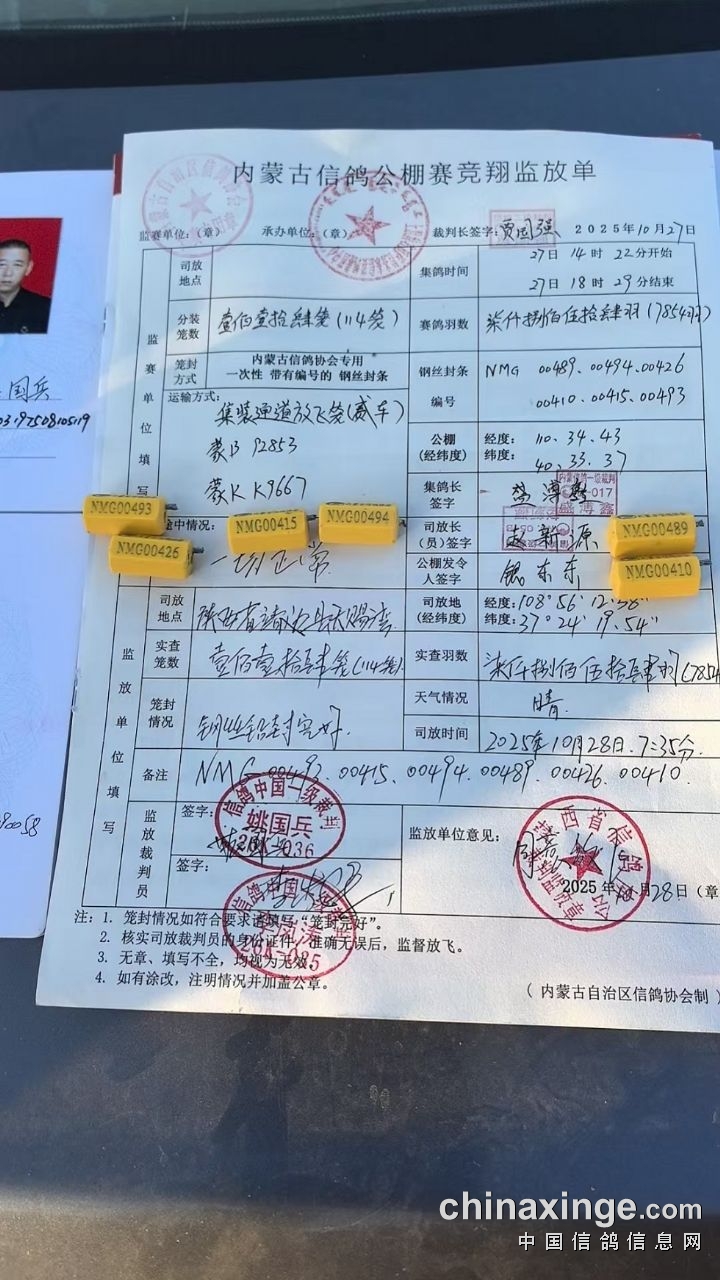 内蒙古信鸽公棚赛竞翔监放单
监赛单位:(章) 承办单位:(章) 裁判长签字:贾国强 2025年10月27日
监赛单位填写
司放地点
集鸽时间 27日14时22分开始
27日18时29分结束
分装笼数 壹佰壹拾肆笼(114笼) 赛鸽羽数 柒仟捌佰伍拾肆羽(7854羽)
笼封方式 内蒙古信鸽协会专用
一次性 带有编号的 钢丝封条
钢丝封条编号 NMG 00489.00494.00426
00410.00415.00493
运输方式:
集装通道放飞笼(赛车)
蒙B 92853
蒙K K9667
公棚(经纬度) 经度:110.34.43
纬度:40.33.37
集鸽长签字
内蒙信鸽一级裁判
盛薄鑫
途中情况:
一切正常
司放长(员)签字 赵新源
公棚发令人签字
NMG00493
NMG00426
NMG00415
NMG00494
NMG00489
NMG00410
监放单位填写
司放地点 陕西省靖边县天赐湾
司放地(经纬度) 经度:108°56′12.58″
纬度:37°24′19.54″
实查笼数 壹佰壹拾肆笼(114笼) 实查羽数 柒仟捌佰伍拾肆羽(7854
笼封情况 钢丝铅封完好. 天气情况 晴
司放时间 2025年10月28日.7:35分.
备注 NMG 00493.00415.00494.00489.00426.00410.
监放裁判员
签字:
信鸽中国一级裁判
姚国兵
签字:
监放单位意见:
2025年10月28日(章
注:1. 笼封情况如符合要求请填写“笼封完好”。
2. 核实司放裁判员的身份证件,准确无误后,监督放飞。
3. 无章、填写不全,均视为无效。
4. 如有涂改,注明情况并加盖公章。
(内蒙古自治区信鸽协会制)
国兵
90058
chinaxinge.com
中国信鸽信息网